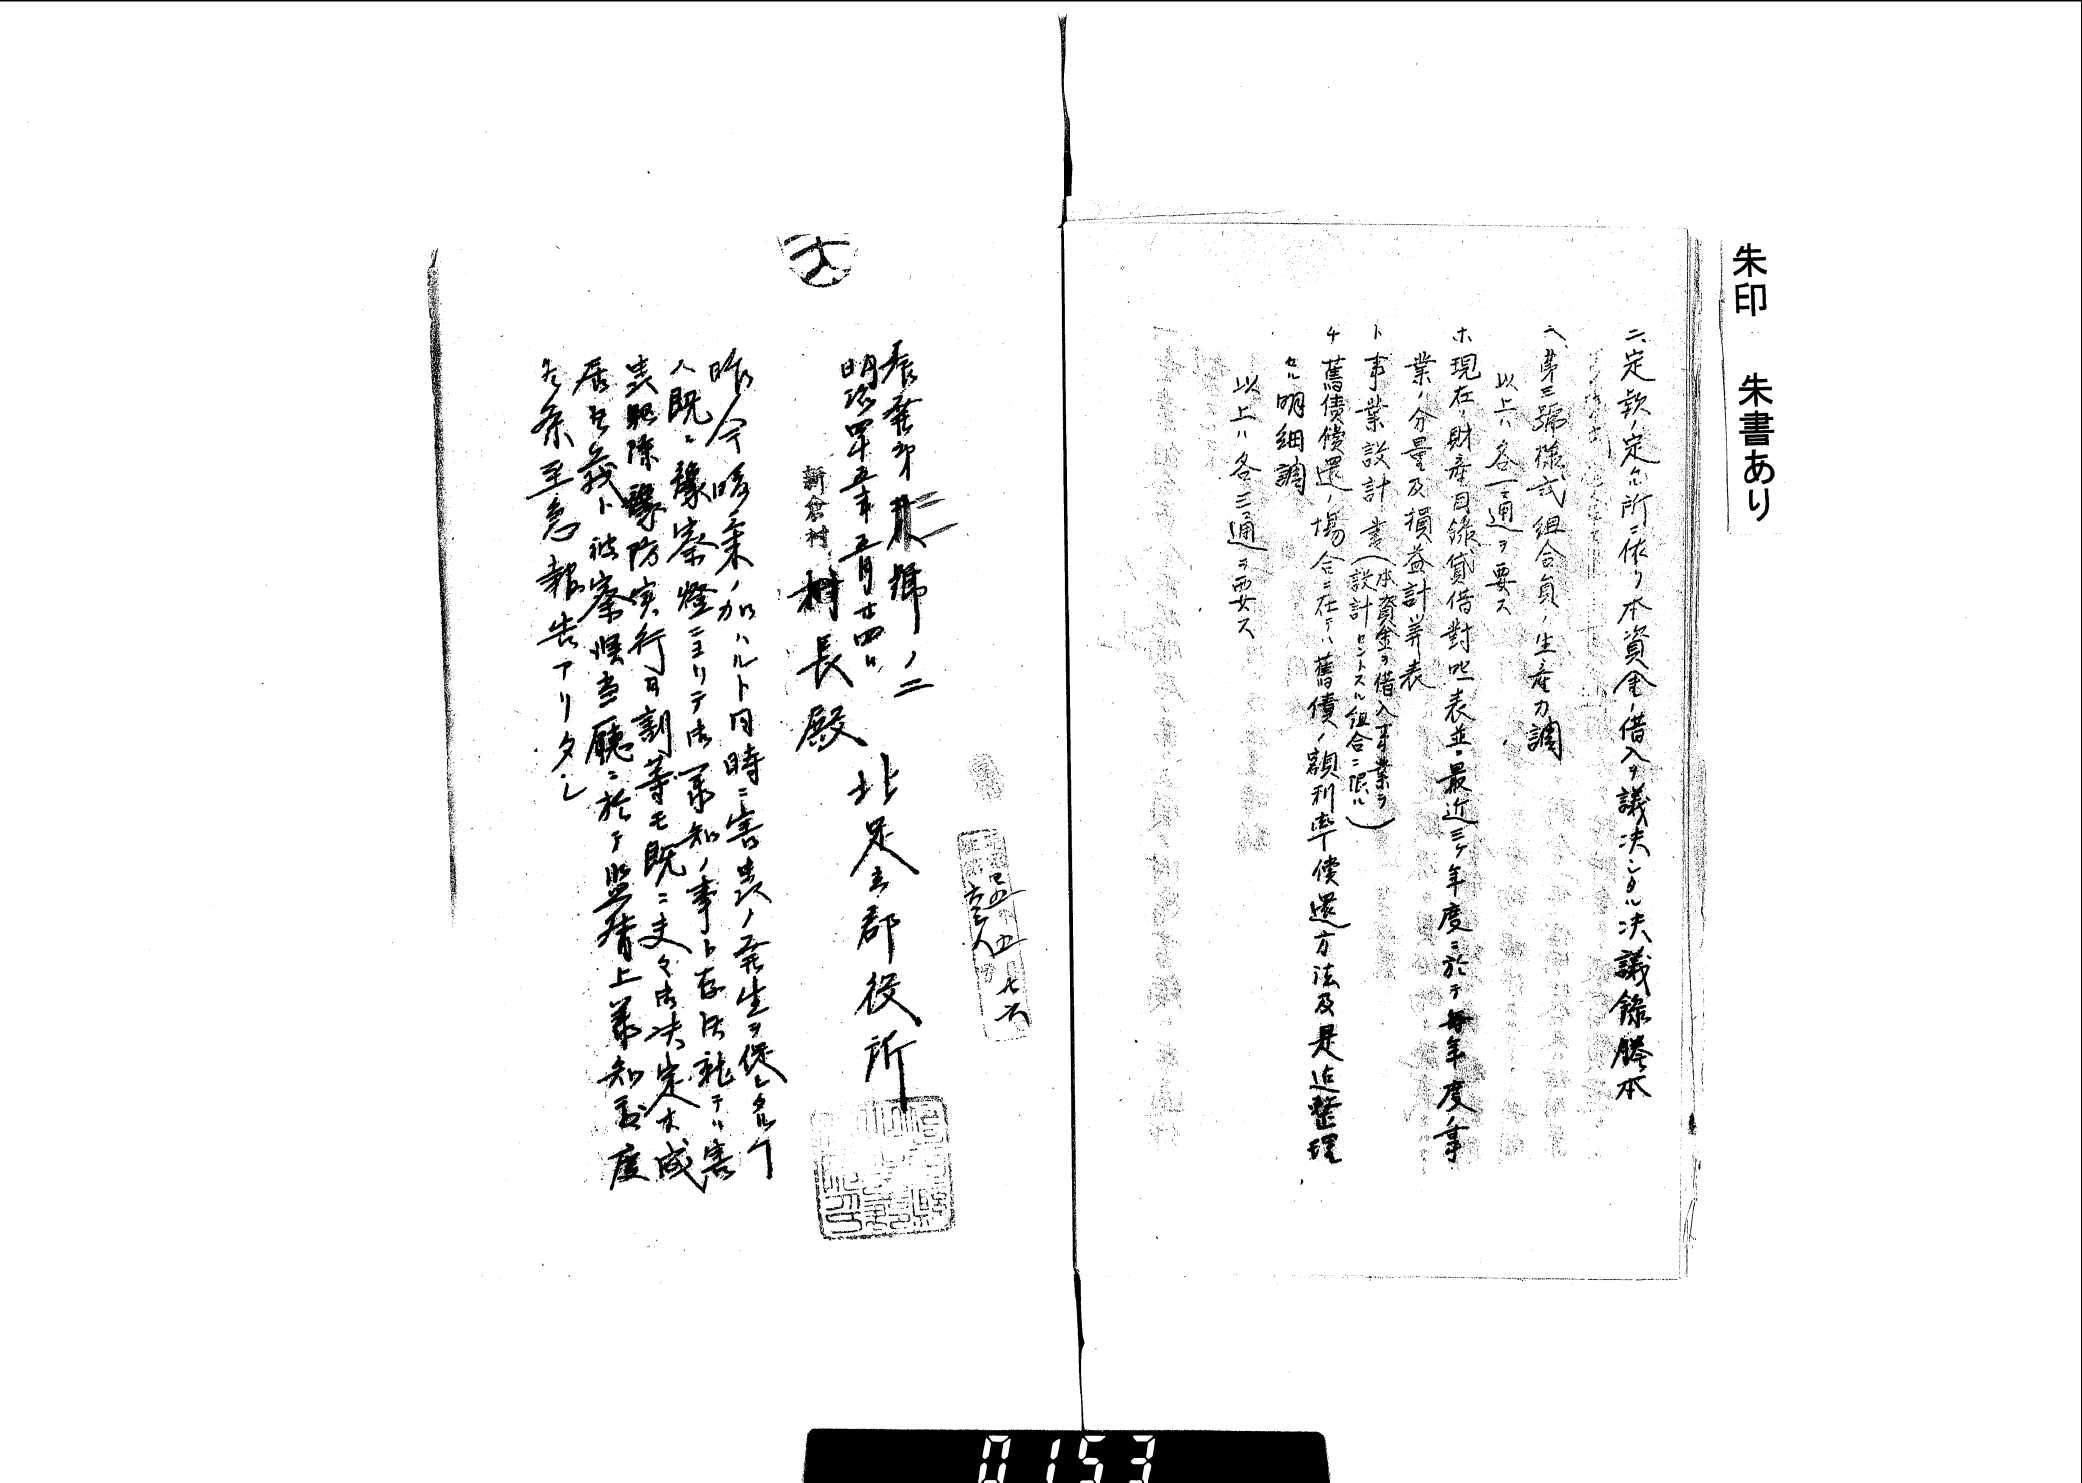 朱印 朱書あり
二、定款ノ定ムル所ニ依リ本資金ノ借入ヲ議決シタル決議錄謄本
ヘ、第三號樣式組合員ノ生産力調
以上ハ各一通ヲ要ス
ホ現在ノ財産目錄貸借對照表並ニ最近三ケ年度ニ於テ每年度ノ事
業ノ分量及損益計算表
ト事業設計書(本資金ヲ借入事業ヲ
設計セントスル組合ニ限ル)
チ舊債償還ノ場合ニ在テハ舊債ノ額利率償還方法及是迄整理
セル明細調
以上ハ各三通ヲ要ス
號ノ二
明治四十五年五月廿四日
北足立郡役所
新倉村
村長殿
昨今暖氣ノ加ハルト同時ニ害虫ノ発生ヲ促シタル
ハ既ニ豫察燈ニヨリテ御承知ノ事ト存候就テハ害
虫駆除豫防実行日割等モ既ニ夫々御決定相成
居候義ト被察候当廳ニ於テ監督上承知致度
候条至急報告アリタシ
0153